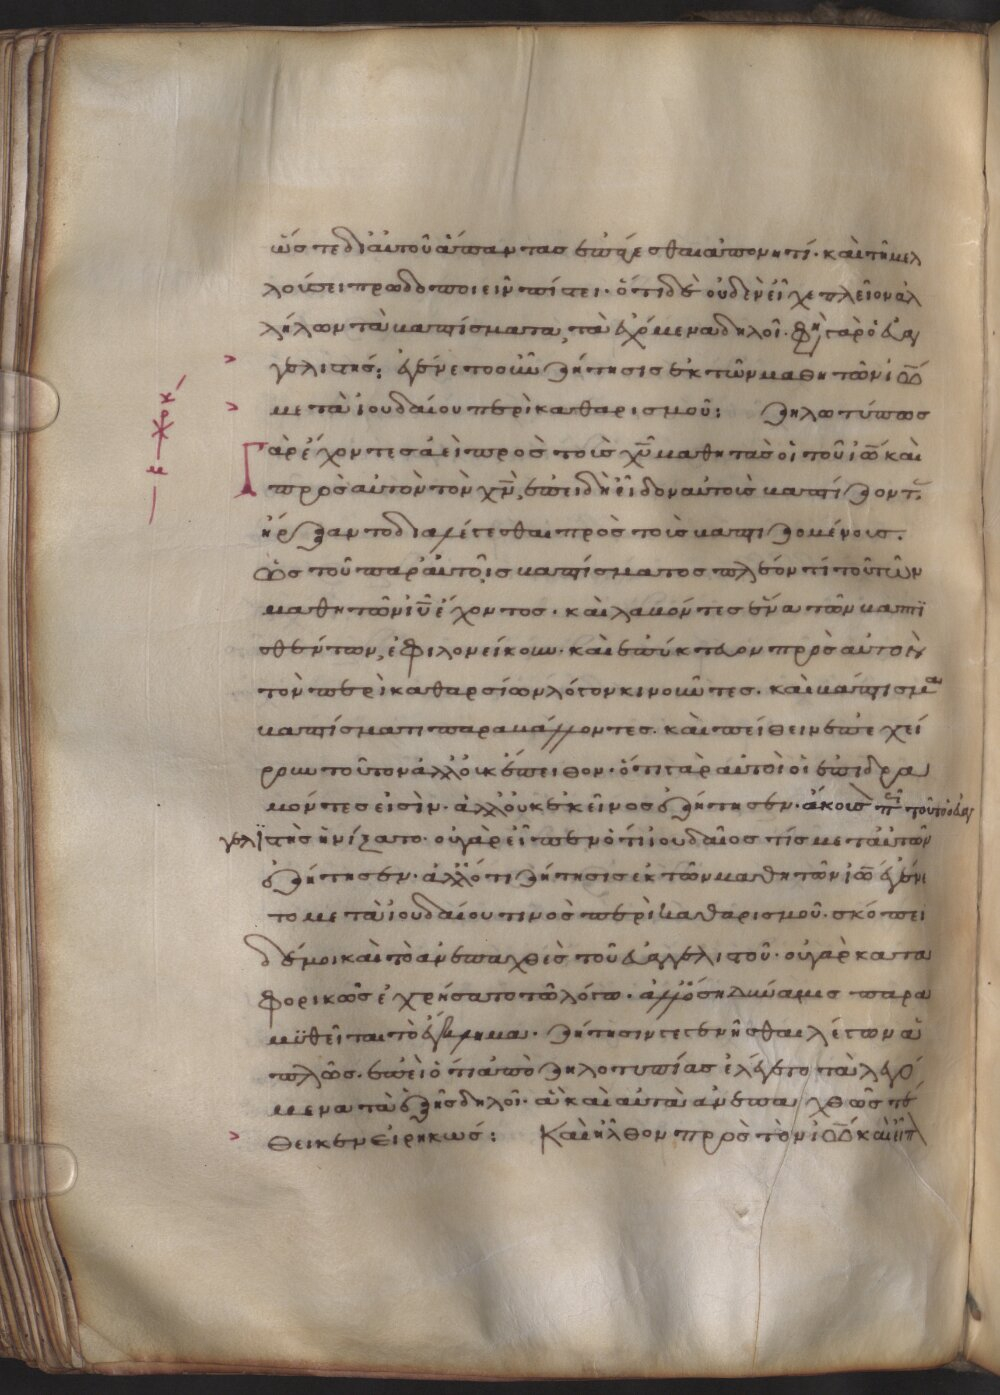 ὥστε δι αὐτοῦ ἅπαντας ἐπάγεσθαι ἀπονητί· καὶ τῇ μελ
λούσει προοδοποιεῖν πίστει· ὅτι δὲ οὐδὲν εἶχε πλεῖον ἀλ
λήλων τὰ βαπτίσματα, τὰ ἐχόμενα δηλοῖ· φη γὰρ ὁ εὐαγ
γελιστής: ἐγένετο οὖν ζήτησις ἐκ τῶν μαθητῶν ἰω
μετὰ ἰουδαίου περὶ καθαρισμοῦ: ζηλοτύπως
Γὰρ ἔχοντες ἀεὶ πρὸς τοὺς χῦ μαθητὰς οἱ τοῦ ἰω καὶ
πρὸς αὐτὸν τὸν χν, ἐπειδὴ εἶδον αὐτοὺς βαπτίζοντ
ἤρξαντο διαλέγεσθαι πρὸς τοὺς βαπτιζομένους.
ὡς τοῦ παρ αὐτοῖς βαπτίσματος πλέον τί τοῦ τῶν
μαθητῶν ιῦ ἔχοντος· καὶ λαβόντες ἕνα τῶν βαπτϊ
σθέντων, ἐφιλονείκουν· καὶ ἐπύκτευον πρὸς αὐτοὺς
τὸν περὶ καθαρσίων λόγον κινοῦντες· καὶ βάπτισμα
βαπτίσματι παραβάλλοντες· καὶ πείθειν ἐπεχεί
ρουν τοῦτον ἀλλ οὐκ ἔπειθον· ὅτι γὰρ αὐτοὶ οἱ ἐπιδρα
μόντες εἰσὶν· ἀλλ οὐκ ἐκεῖνος ἐζήτησεν· ἄκους πῶς τοῦτο ὁ εὐαγ
γελϊστὴς ἠνίξατο· οὐ γὰρ εἶπεν ὅτι ἰουδαῖος τίς μετ αὐτῶν
ἐζήτησεν· ἀλλ ὅτι ζήτησις ἐκ τῶν μαθητῶν ἰω ἐγένε
το μετὰ ἰουδαίου τινος περὶ καθαρισμοῦ· σκόπει
δέ μοι καὶ τὸ ἀνεπαχθὲς τοῦ εὐαγγελιστοῦ· οὐ γὰρ κατα
φορικῶς ἐχρήσατο τῶ λόγω· ἀλλ ὅση δύναμις παρα
μϋθεῖται τὸ ἔγκλημα· ζήτησιν γεγενῆσθαι λέγων ἁ
πλῶς. ἐπεὶ ὅτι ἀπὸ ζηλοτυπίας ἐλέγετο τὰ λεγό
μενα τὰ ἑξῆς δηλοῖ· ἃ καὶ αὐτὰ ἀνεπαχθῶς τέ
θεικεν εἰρηκώς: Καὶ ἦλθον πρὸς τὸν ἰω καὶ εἶπ